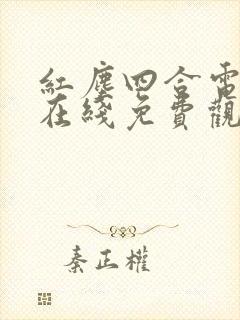 紅塵四合電
在綫免費觀
秦正權